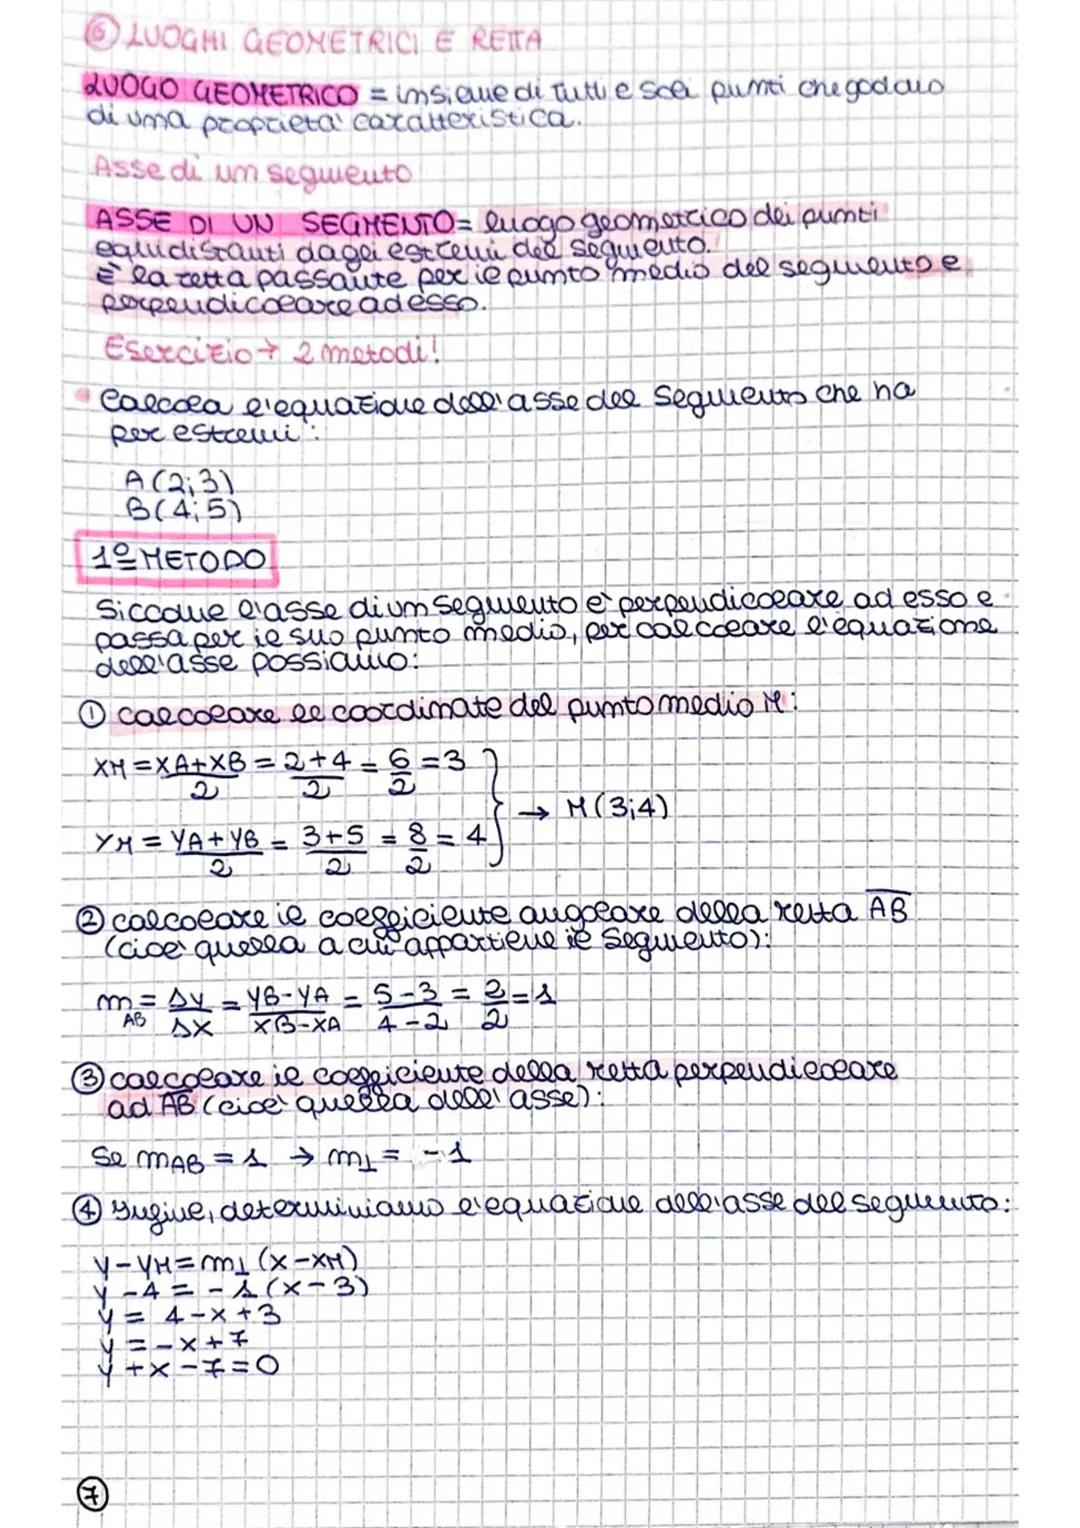 ⑥ LUOGHI GEOMETRICI E RETTA
LUOGO GEOMETRICO = insieme di tutti e soli punti che godano
di una proprietà caratteristica.
Asse di un segmento
ASSE DI UN SEGMENTO = luogo geometrico dei punti
equidistanti dagli estremi del segmento.
È la retta passante per il punto medio del segmento e
perpendicolare ad esso.
Esercizio → 2 metodi!
• Calcola l'equazione dell'asse del segmento che ha
per estremi:
A (2;3)
B (4;5)
1º METODO
Siccome l'asse di un segmento è perpendicolare ad esso e
passa per il suo punto medio, per calcolare l'equazione
dell'asse possiamo:
① calcolare le coordinate del punto medio M:
XM = XA+XB/2 = 2+4/2 = 6/2 = 3
→ M (3;4)
YM = YA+YB/2 = 3+5/2 = 8/2 = 4
② calcolare il coefficiente angolare della retta AB
(cioè quella a cui appartiene il segmento):
mAB = Δy/Δx = YB-YA/XB-XA = 5-3/4-2 = 2/2 = 1
③ calcolare il coefficiente della retta perpendicolare
ad AB (cioè quella dell'asse):
Se mAB = 1 → m⊥ = -1
④ Infine, determiniamo l'equazione dell'asse del segmento:
y-yM = m⊥ (x-xM)
y-4 = -1 (x-3)
y = 4-x+3
y = -x+7
y+x-7=0
⑦